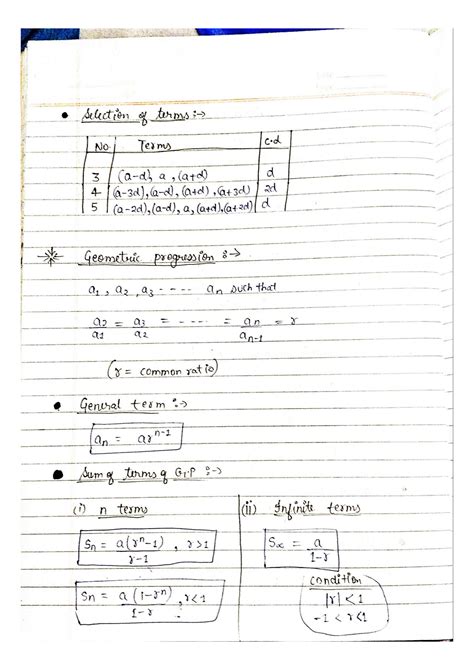 • Selection of terms :→
No. Terms c.d
3 (a-d), a , (a+d) d
4 (a-3d),(a-d), (a+d) ,(a+3d) 2d
5 (a-2d),(a-d), a, (a+d),(a+2d) d
Geometric progression :→
a₁ , a₂ , a₃ ---- aₙ such that
a₂/a₁ = a₃/a₂ = ---- = aₙ/aₙ₋₁ = r
(r = common ratio)
• General term :→
aₙ = arⁿ⁻¹
• Sum of terms of G.P :→
(i) n terms
Sₙ = a(rⁿ-1)/r-1 , r>1
Sₙ = a(1-rⁿ)/1-r , r<1
(ii) Infinite terms
S∞ = a/1-r
condition
|r| < 1
-1 < r < 1